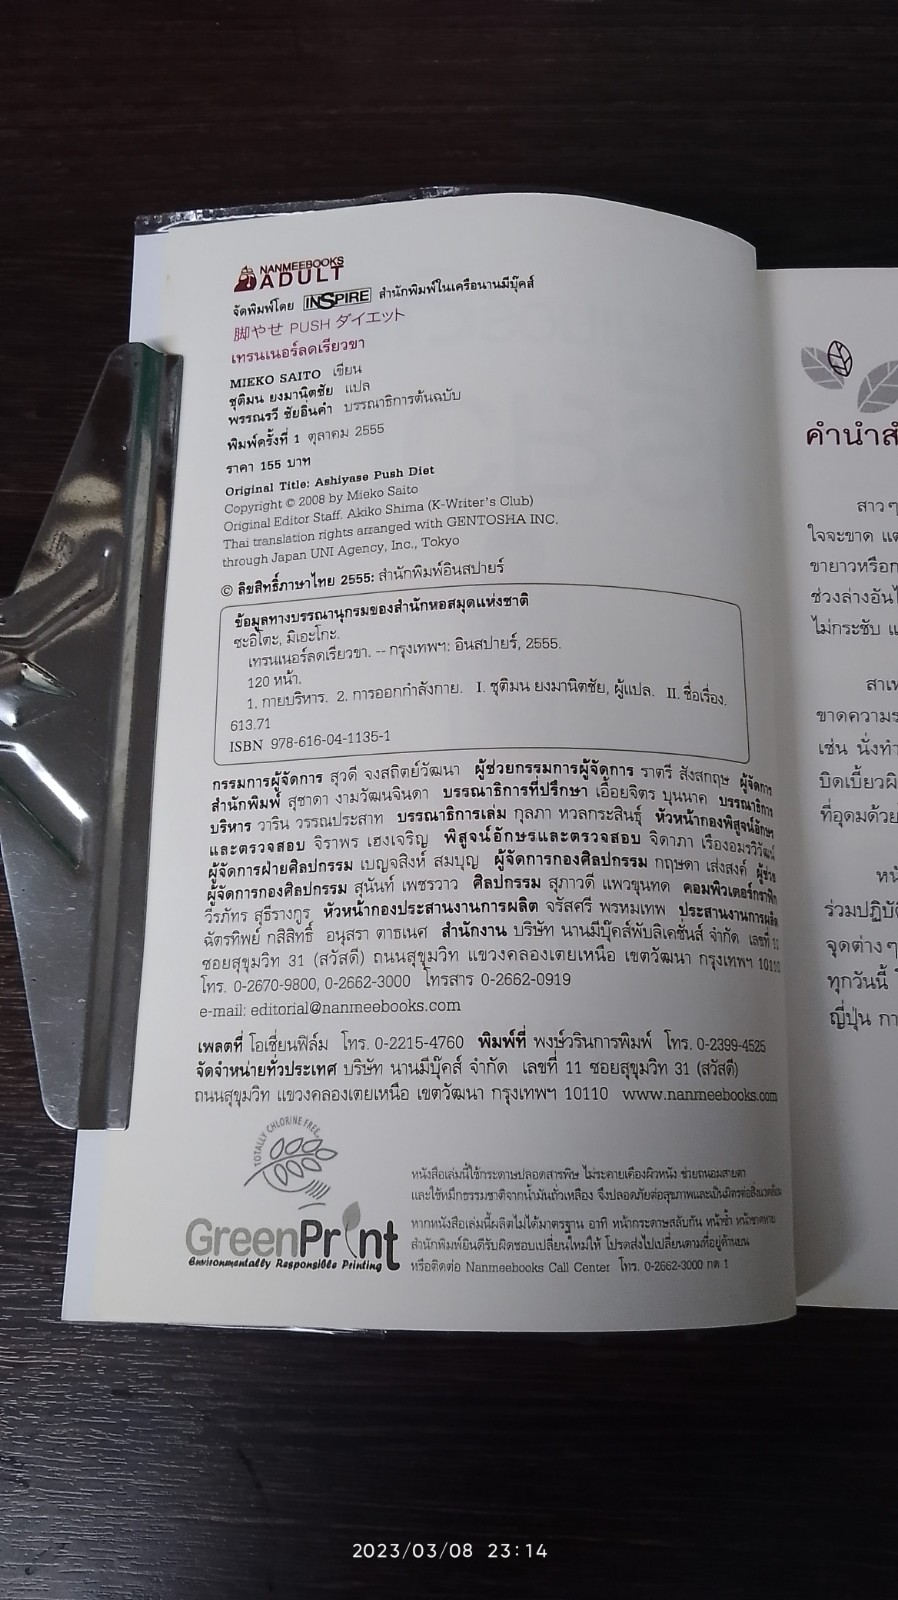 NANMEEBOOKS
ADULT
จัดพิมพ์โดย INSPIRE สำนักพิมพ์ในเครือนานมีบุ๊คส์
脚やせ PUSH ダイエット
เทรนเนอร์ลดเรียวขา
MIEKO SAITO เขียน
ชุติมน ยงมานิตชัย แปล
พรรณรวี ชัยอินคำ บรรณาธิการต้นฉบับ
พิมพ์ครั้งที่ 1 ตุลาคม 2555
ราคา 155 บาท
Original Title: Ashiyase Push Diet
Copyright © 2008 by Mieko Saito
Original Editor Staff. Akiko Shima (K-Writer's Club)
Thai translation rights arranged with GENTOSHA INC.
through Japan UNI Agency, Inc., Tokyo
© ลิขสิทธิ์ภาษาไทย 2555: สำนักพิมพ์อินสปายร์
ข้อมูลทางบรรณานุกรมของสำนักหอสมุดแห่งชาติ
ซะอิโตะ, มิเอะโกะ.
เทรนเนอร์ลดเรียวขา. -- กรุงเทพฯ: อินสปายร์, 2555.
120 หน้า.
1. กายบริหาร. 2. การออกกำลังกาย. I. ชุติมน ยงมานิตชัย, ผู้แปล. II. ชื่อเรื่อง.
613.71
ISBN 978-616-04-1135-1
กรรมการผู้จัดการ สุวดี จงสถิตย์วัฒนา ผู้ช่วยกรรมการผู้จัดการ ราตรี สังสกฤษ ผู้จัดการ
สำนักพิมพ์ สุชาดา งามวัฒนจินดา บรรณาธิการที่ปรึกษา เอื้อยจิตร บุนนาค บรรณาธิการ
บริหาร วาริน วรรณประสาท บรรณาธิการเล่ม กุลภา หวลกระสินธุ์ หัวหน้ากองพิสูจน์อักษร
และตรวจสอบ จิราพร เฮงเจริญ พิสูจน์อักษรและตรวจสอบ จิดาภา เรืองอมรวิวัฒน์
ผู้จัดการฝ่ายศิลปกรรม เบญจสิงห์ สมบุญ ผู้จัดการกองศิลปกรรม กฤษดา เส่งสงค์ ผู้ช่วย
ผู้จัดการกองศิลปกรรม สุนันท์ เพชรวาว ศิลปกรรม สุภาวดี แพวขุนทด คอมพิวเตอร์กราฟิก
วีรภัทร สุธีรางกูร หัวหน้ากองประสานงานการผลิต จรัสศรี พรหมเทพ ประสานงานการผลิต
ฉัตรทิพย์ กสิสิทธิ์ อนุสรา ตาธเนศ สำนักงาน บริษัท นานมีบุ๊คส์พับลิเคชั่นส์ จำกัด เลขที่ 11
ซอยสุขุมวิท 31 (สวัสดี) ถนนสุขุมวิท แขวงคลองเตยเหนือ เขตวัฒนา กรุงเทพฯ 10110
โทร. 0-2670-9800, 0-2662-3000 โทรสาร 0-2662-0919
e-mail: editorial@nanmeebooks.com
เพลตที่ โอเชี่ยนฟิล์ม โทร. 0-2215-4760 พิมพ์ที่ พงษ์วรินการพิมพ์ โทร. 0-2399-4525
จัดจำหน่ายทั่วประเทศ บริษัท นานมีบุ๊คส์ จำกัด เลขที่ 11 ซอยสุขุมวิท 31 (สวัสดี)
ถนนสุขุมวิท แขวงคลองเตยเหนือ เขตวัฒนา กรุงเทพฯ 10110 www.nanmeebooks.com
TOTALLY CHLORINE FREE
GreenPrint
Environmentally Responsible Printing
หนังสือเล่มนี้ใช้กระดาษปลอดสารพิษ ไม่ระคายเคืองผิวหนัง ช่วยถนอมสายตา
และใช้หมึกธรรมชาติจากน้ำมันถั่วเหลือง จึงปลอดภัยต่อสุขภาพและเป็นมิตรต่อสิ่งแวดล้อม
หากหนังสือเล่มนี้ผลิตไม่ได้มาตรฐาน อาทิ หน้ากระดาษสลับกัน หน้าซ้ำ หน้าขาดหาย
สำนักพิมพ์ยินดีรับผิดชอบเปลี่ยนใหม่ให้ โปรดส่งไปเปลี่ยนตามที่อยู่ด้านบน
หรือติดต่อ Nanmeebooks Call Center โทร. 0-2662-3000 กด 1
คำนำสำ
สาวๆ
ใจจะขาด แต
ขายาวหรือก
ช่วงล่างอันไ
ไม่กระชับ แ
สาเห
ขาดความร
เช่น นั่งทำ
บิดเบี้ยวผิ
ที่อุดมด้วย
หนั
ร่วมปฏิบัติ
จุดต่างๆ
ทุกวันนี้
ญี่ปุ่น กา
2023/03/08 23:14